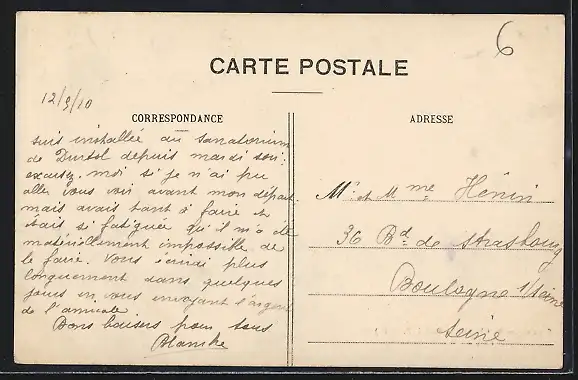 6
CARTE POSTALE
12/9/10
CORRESPONDANCE
ADRESSE
suis installée au Sanatorium
de Durtol depuis mardi soir;
excusez-moi si je n'ai pu
aller vous voir avant mon départ
mais avais tant à faire et
étais si fatiguée qu'il m'a été
matériellement impossible de
le faire. Vous écrirai plus
longuement dans quelques
jours en vous envoyant l'argent
de l'amicale
Bons baisers pour tous
Blanche
Mr et Mme Hénin
36 Bd de Strasbourg
Boulogne s/Seine
Seine